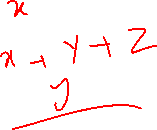 x
x + y + z
y